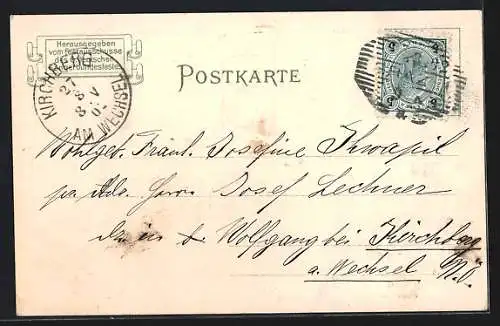 Herausgegeben
vom Festausschusse
POSTKARTE
KIRCHBERG
27
8
AM WECHSEL
5
5
Wohlgeb. Fräul. Josefine Skwapil
pr. Adr. Herrn Josef Lechner
in St. Wolfgang bei Kirchberg
a. Wechsel N.Ö.